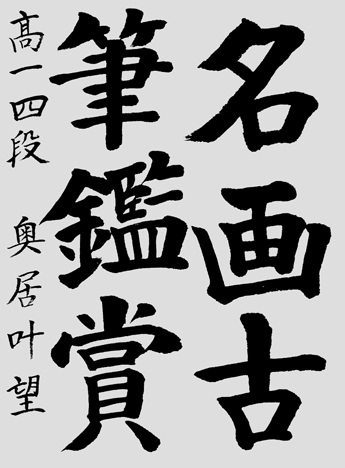 名画古
筆鑑賞
高一四段 奥居叶望